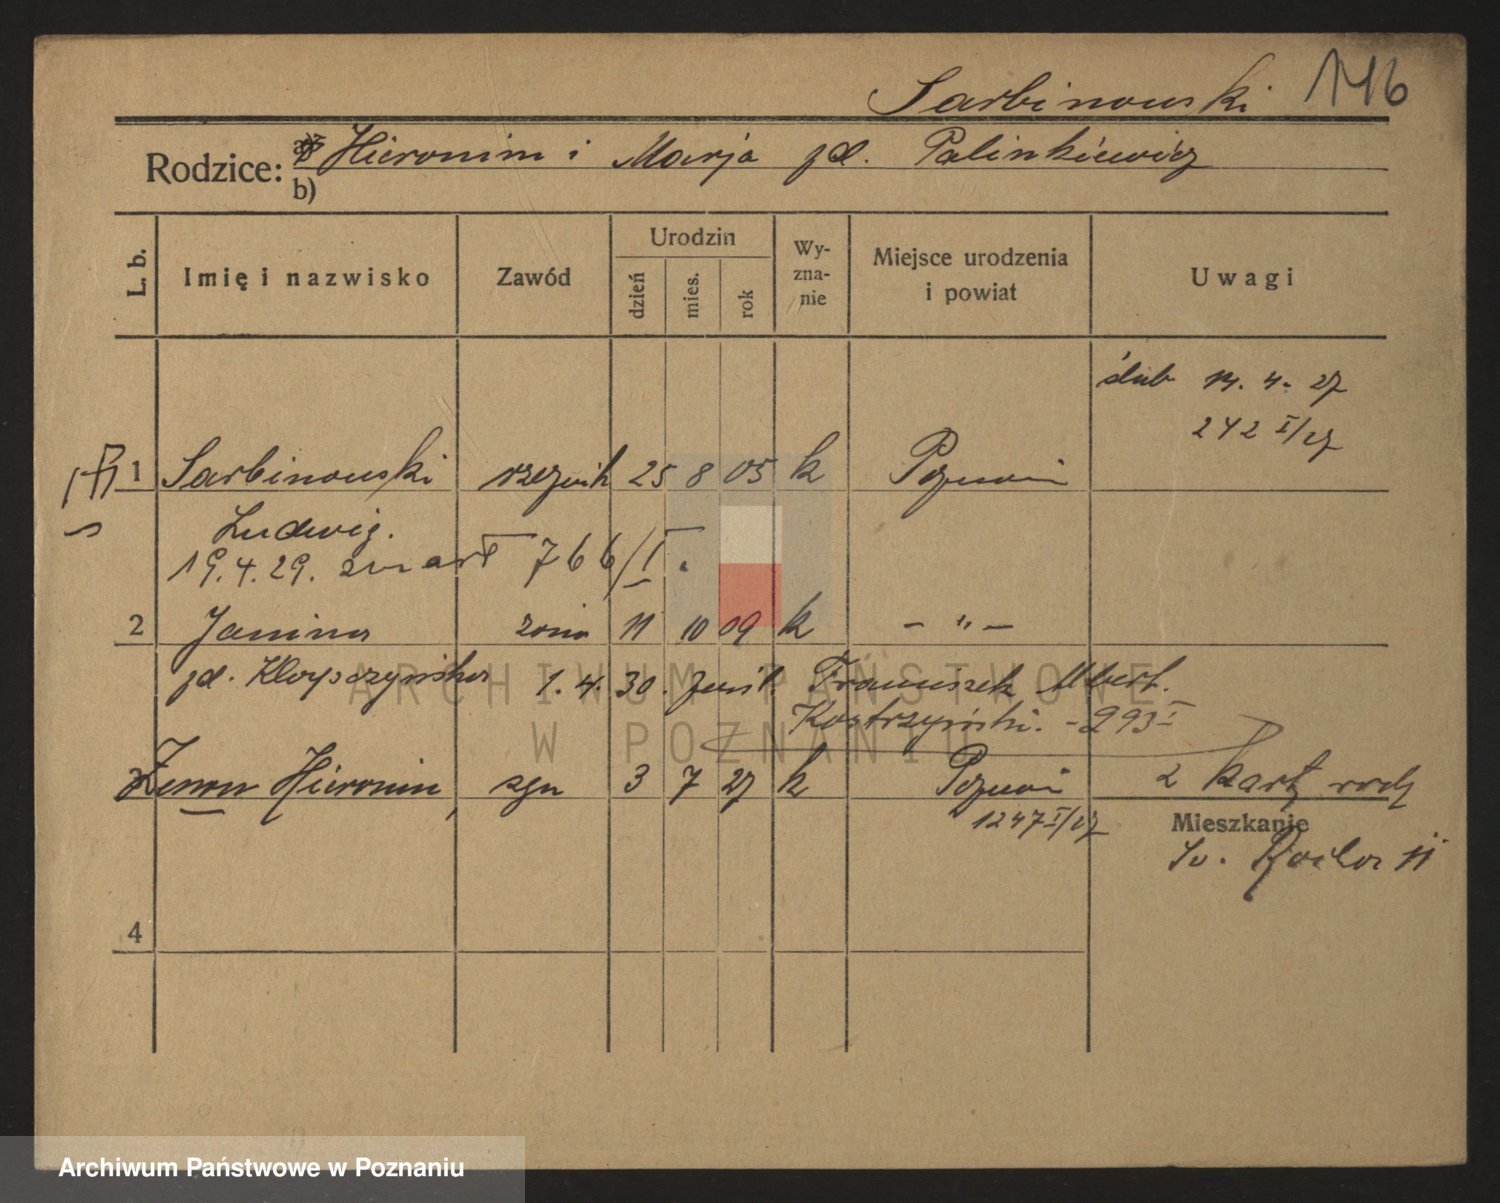 Sarbinowski 146
Rodzice: a) Hieronim i Marja zd. Palinkiewicz
b)
L. b.
Imię i nazwisko
Zawód
Urodzin
dzień
mies.
rok
Wy-
zna-
nie
Miejsce urodzenia
i powiat
Uwagi
ślub 14. 4. 27
242 I/27
1 Sarbinowski rzeźnik 25 8 05 k Poznań
Ludwig.
19.4.29. zmarł 766/I.
2 Janina żona 11 10 09 k – „ –
zd. 1.4.30. Franciszek Albert.
Kostrzyński. - 293 I
3 Zenon Hieronim, syn 3 7 27 k Poznań 2 karty rodz
1247 I/27
Mieszkanie
11
4
ARCHIWUM PAŃSTWOWE
W POZNANIU
Archiwum Państwowe w Poznaniu